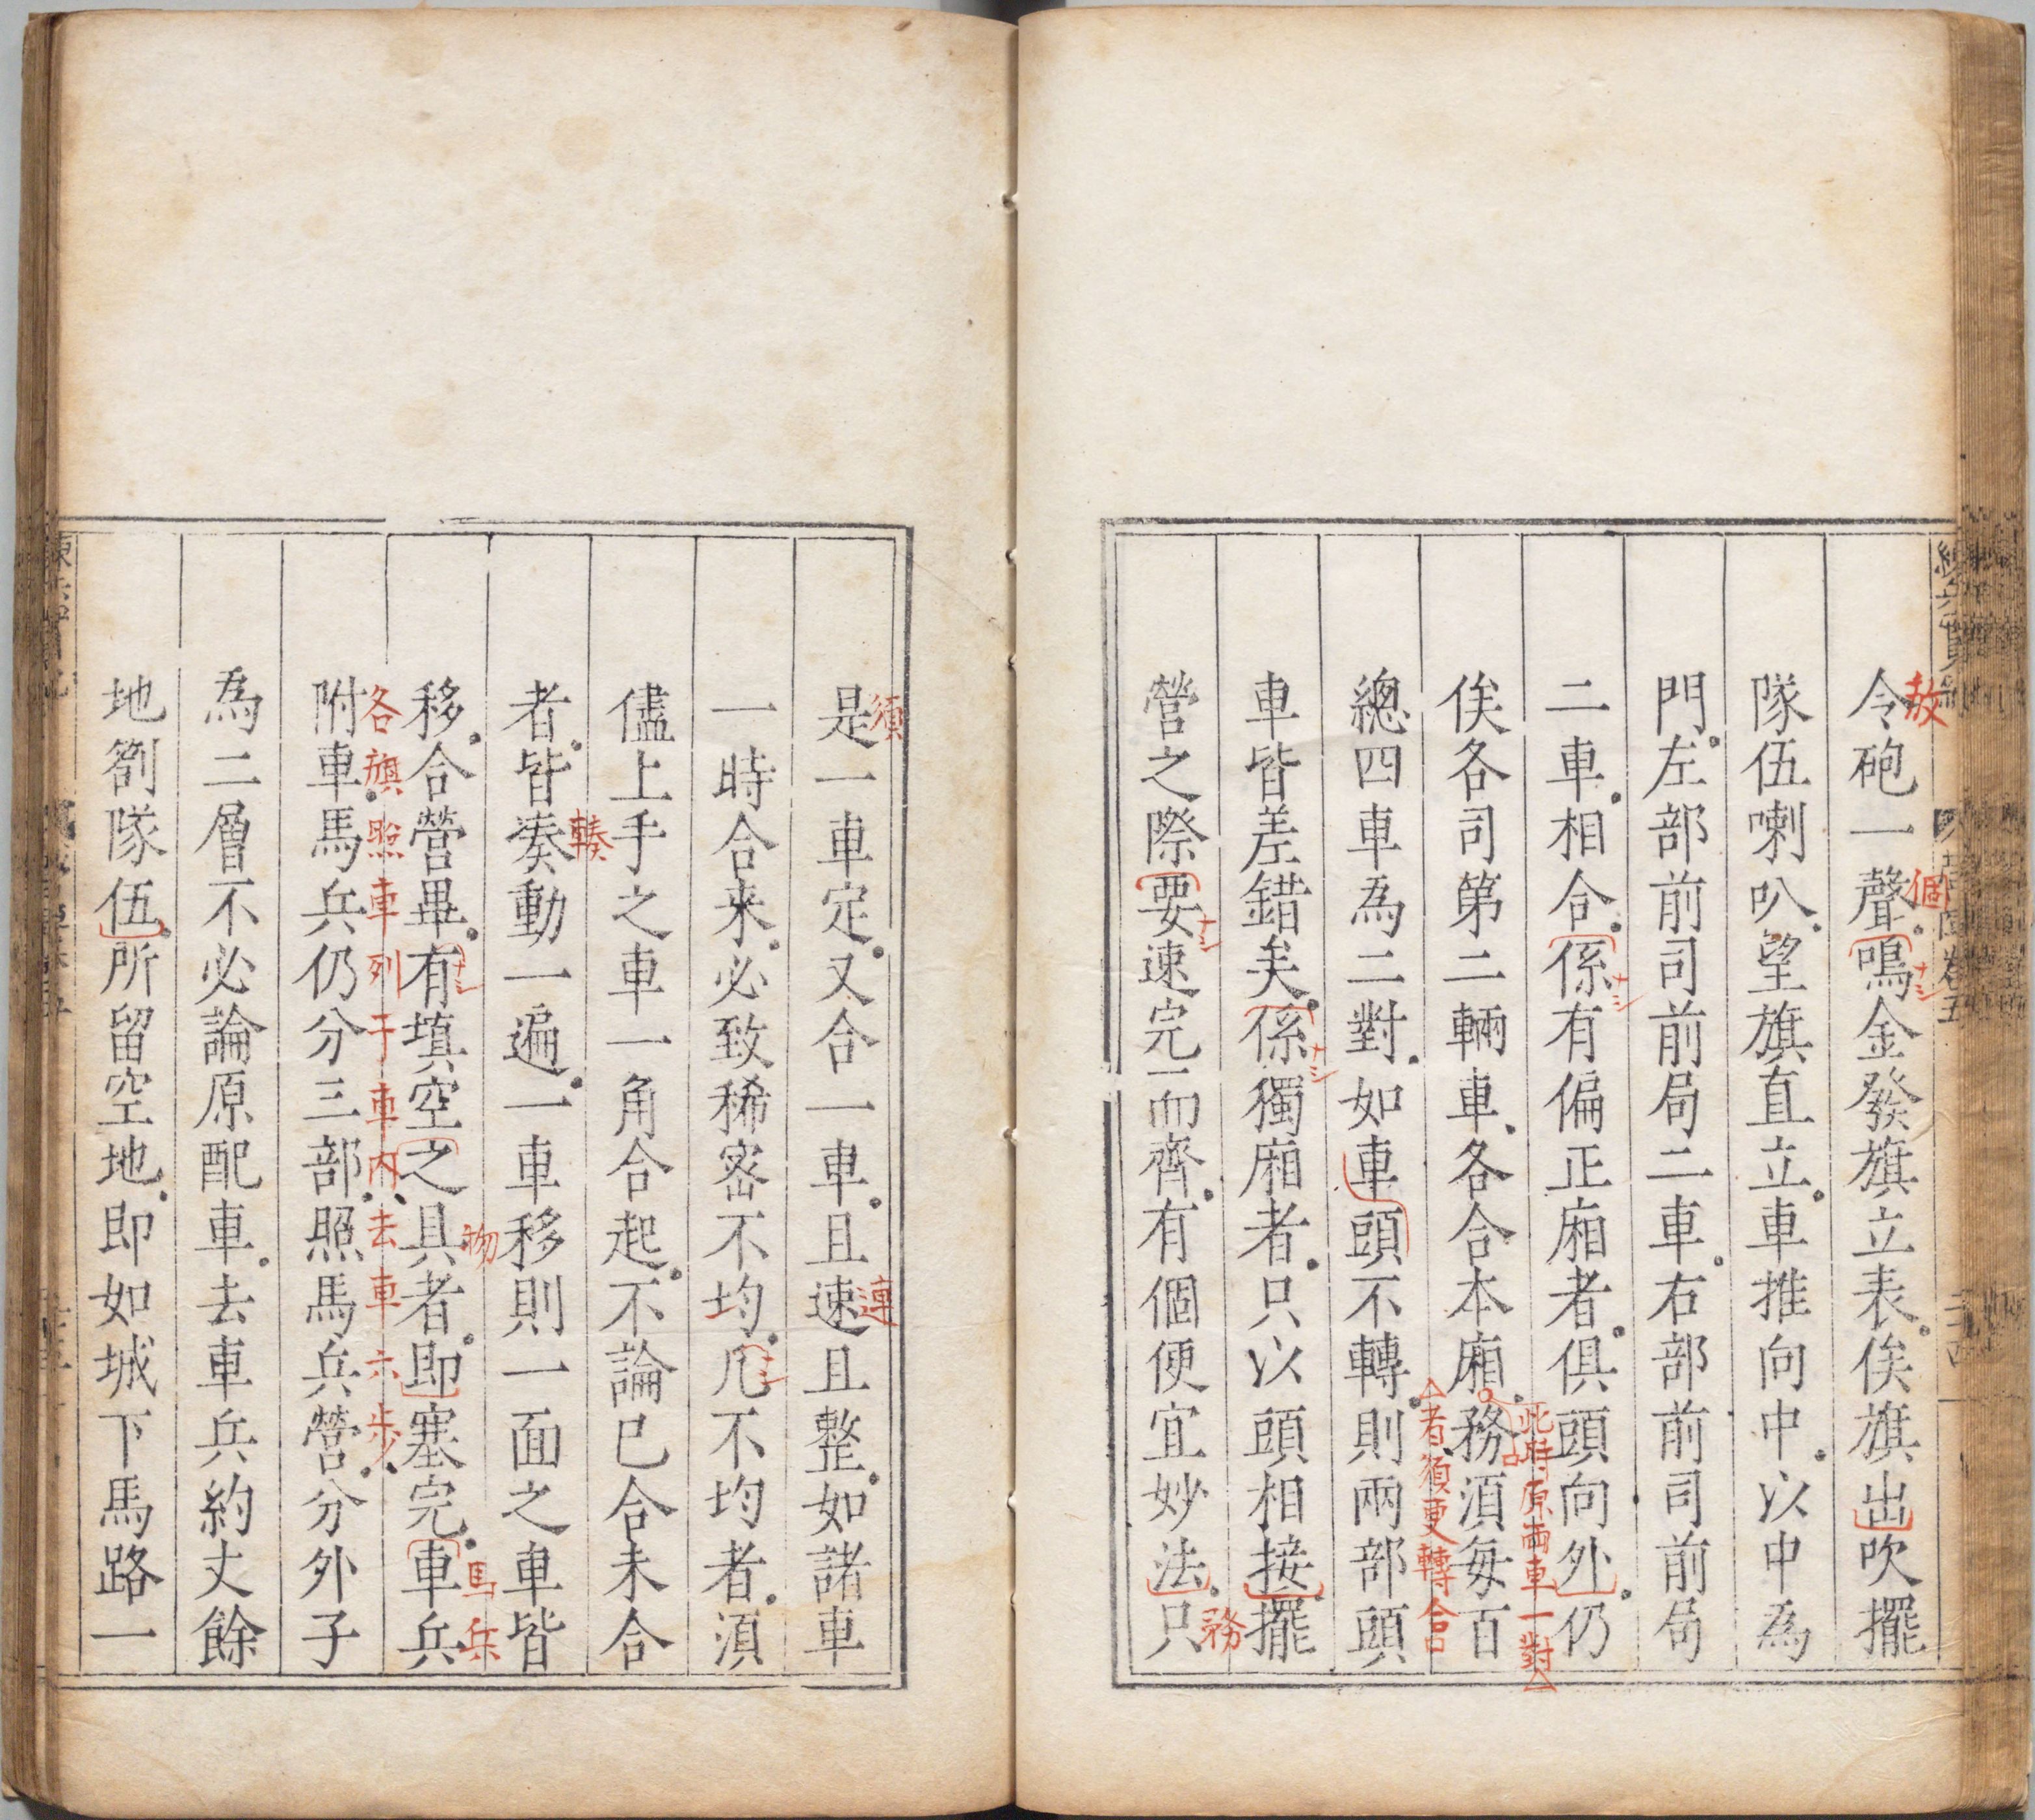 令砲一聲鳴金發旗立表俟旗出吹擺
放
個
ナシ
隊伍喇叭望旗直立車推向中以中為
門左部前司前局二車右部前司前局
二車相合係有偏正廂者俱頭向外仍
ナシ
此時原両車一對
俟各司第二輛車各合本廂務須每百
者須更轉合口
總四車為二對如車頭不轉則兩部頭
車皆差錯矣係獨廂者只以頭相接擺
ナシ
營之際要速完而齊有個便宜妙法只
ナシ
務
是一車定又合一車且速且整如諸車
須
連
一時合来必致稀密不均凢不均者須
ナシ
儘上手之車一角合起不論已合未合
者皆凑動一遍一車移則一面之車皆
輳
移合營畢有填空之具者即塞完車兵
ナシ
物
馬兵
各旗照車列于車内去車六歩
附車馬兵仍分三部照馬兵營分外子
為二層不必論原配車去車兵約丈餘
地劄隊伍所留空地即如城下馬路一